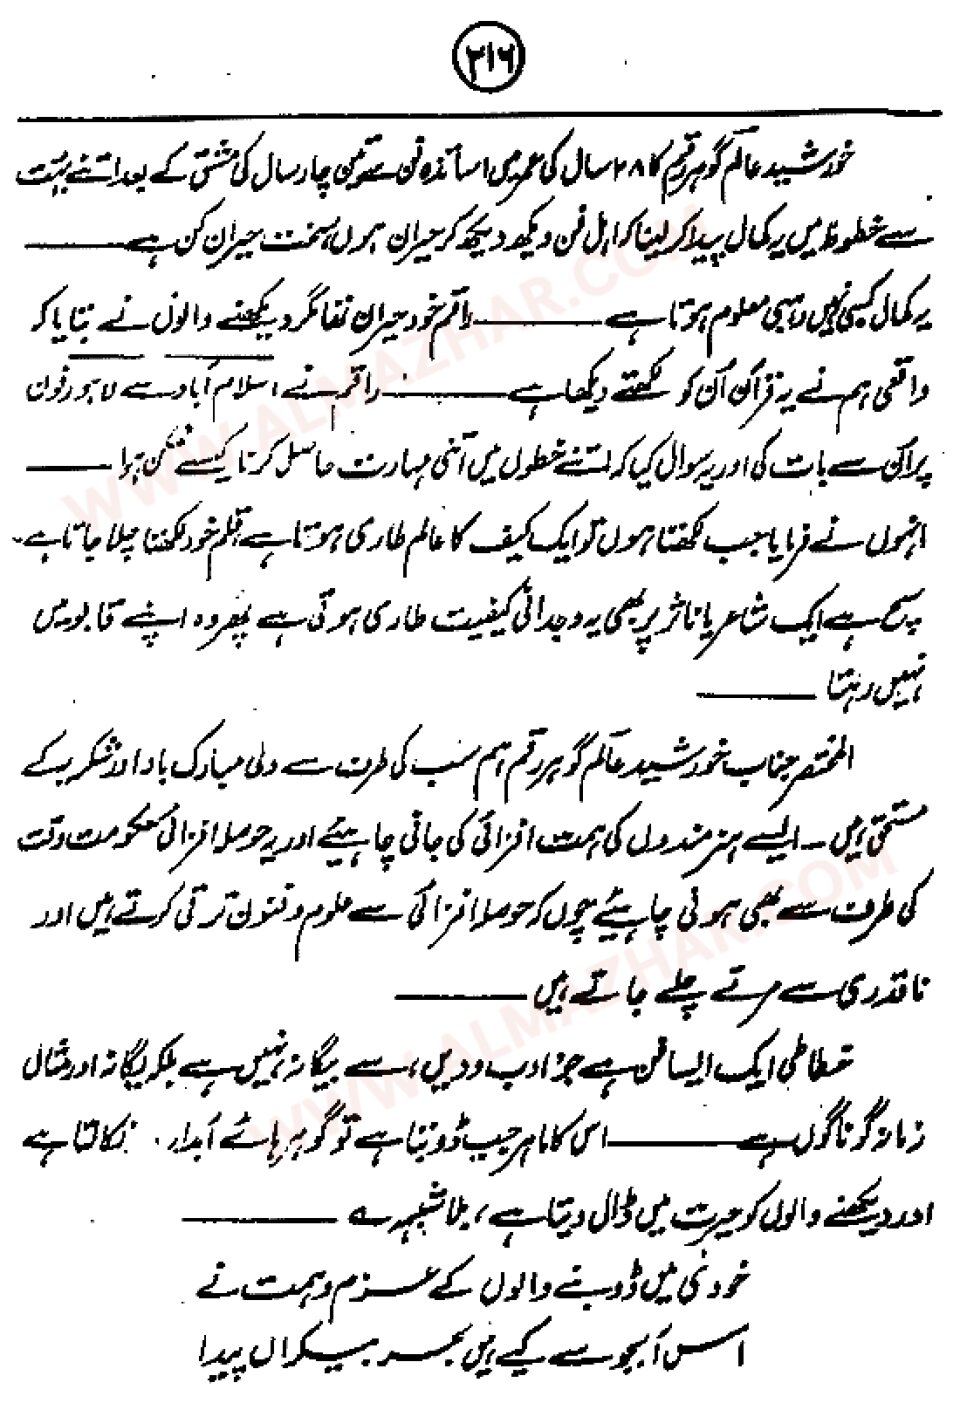 ۲۱۶
خورشید عالم گوہر رقم کا ۲۸ سال کی عمر میں اساتذہ فن سے تین چار سال کی مشق کے بعد اتنے بہت
سے خطوط میں یہ کمال پیدا کر لینا کہ اہل فن دیکھ دیکھ کر حیران ہوں، سخت حیران کن ہے ـــــــ
یہ کمال کسبی نہیں وہبی معلوم ہوتا ہے ـــــــ راقم خود حیران تھا مگر دیکھنے والوں نے بتایا کہ
واقعی ہم نے یہ قرآن اُن کو لکھتے دیکھا ہے ـــــــ راقم نے اسلام آباد سے لاہور فون
پر اُن سے بات کی اور یہ سوال کیا کہ اتنے خطوں میں اتنی مہارت حاصل کرنا کیسے ممکن ہوا ـــــــ
انہوں نے فرمایا جب لکھتا ہوں تو ایک کیف کا عالم طاری ہوتا ہے، قلم خود لکھتا چلا جاتا ہے۔
سچ ہے ایک شاعر یا ناثر پر بھی یہ وجدانی کیفیت طاری ہوتی ہے پھر وہ اپنے قابو میں
نہیں رہتا ـــــــ
المختصر جناب خورشید عالم گوہر رقم ہم سب کی طرف سے دلی مبارک باد اور شکریے کے
مستحق ہیں ۔ ایسے ہنرمندوں کی ہمت افزائی کی جانی چاہیئے اور یہ حوصلہ افزائی حکومت وقت
کی طرف سے بھی ہونی چاہیئے چوں کہ حوصلہ افزائی سے علوم و فنون ترقی کرتے ہیں اور
ناقدری سے مرتے چلے جاتے ہیں ـــــــ
خطاطی ایک ایسا فن ہے جو ادب و دیں، سے بیگانہ نہیں ہے بلکہ یگانہ اور مثال
زمانہ گوناگوں ہے ـــــــ اس کا ماہر جب ڈوبتا ہے تو گوہر ہائے آبدار نکالتا ہے
اور دیکھنے والوں کو حیرت میں ڈال دیتا ہے، بلا شبہہ ے ـــــــ
خودی میں ڈوبنے والوں کے عزم و ہمت نے
اس آبجو سے کیے ہیں بحر بیکراں پیدا
WWW.ALMAZHAR.COM
WWW.ALMAZHAR.COM